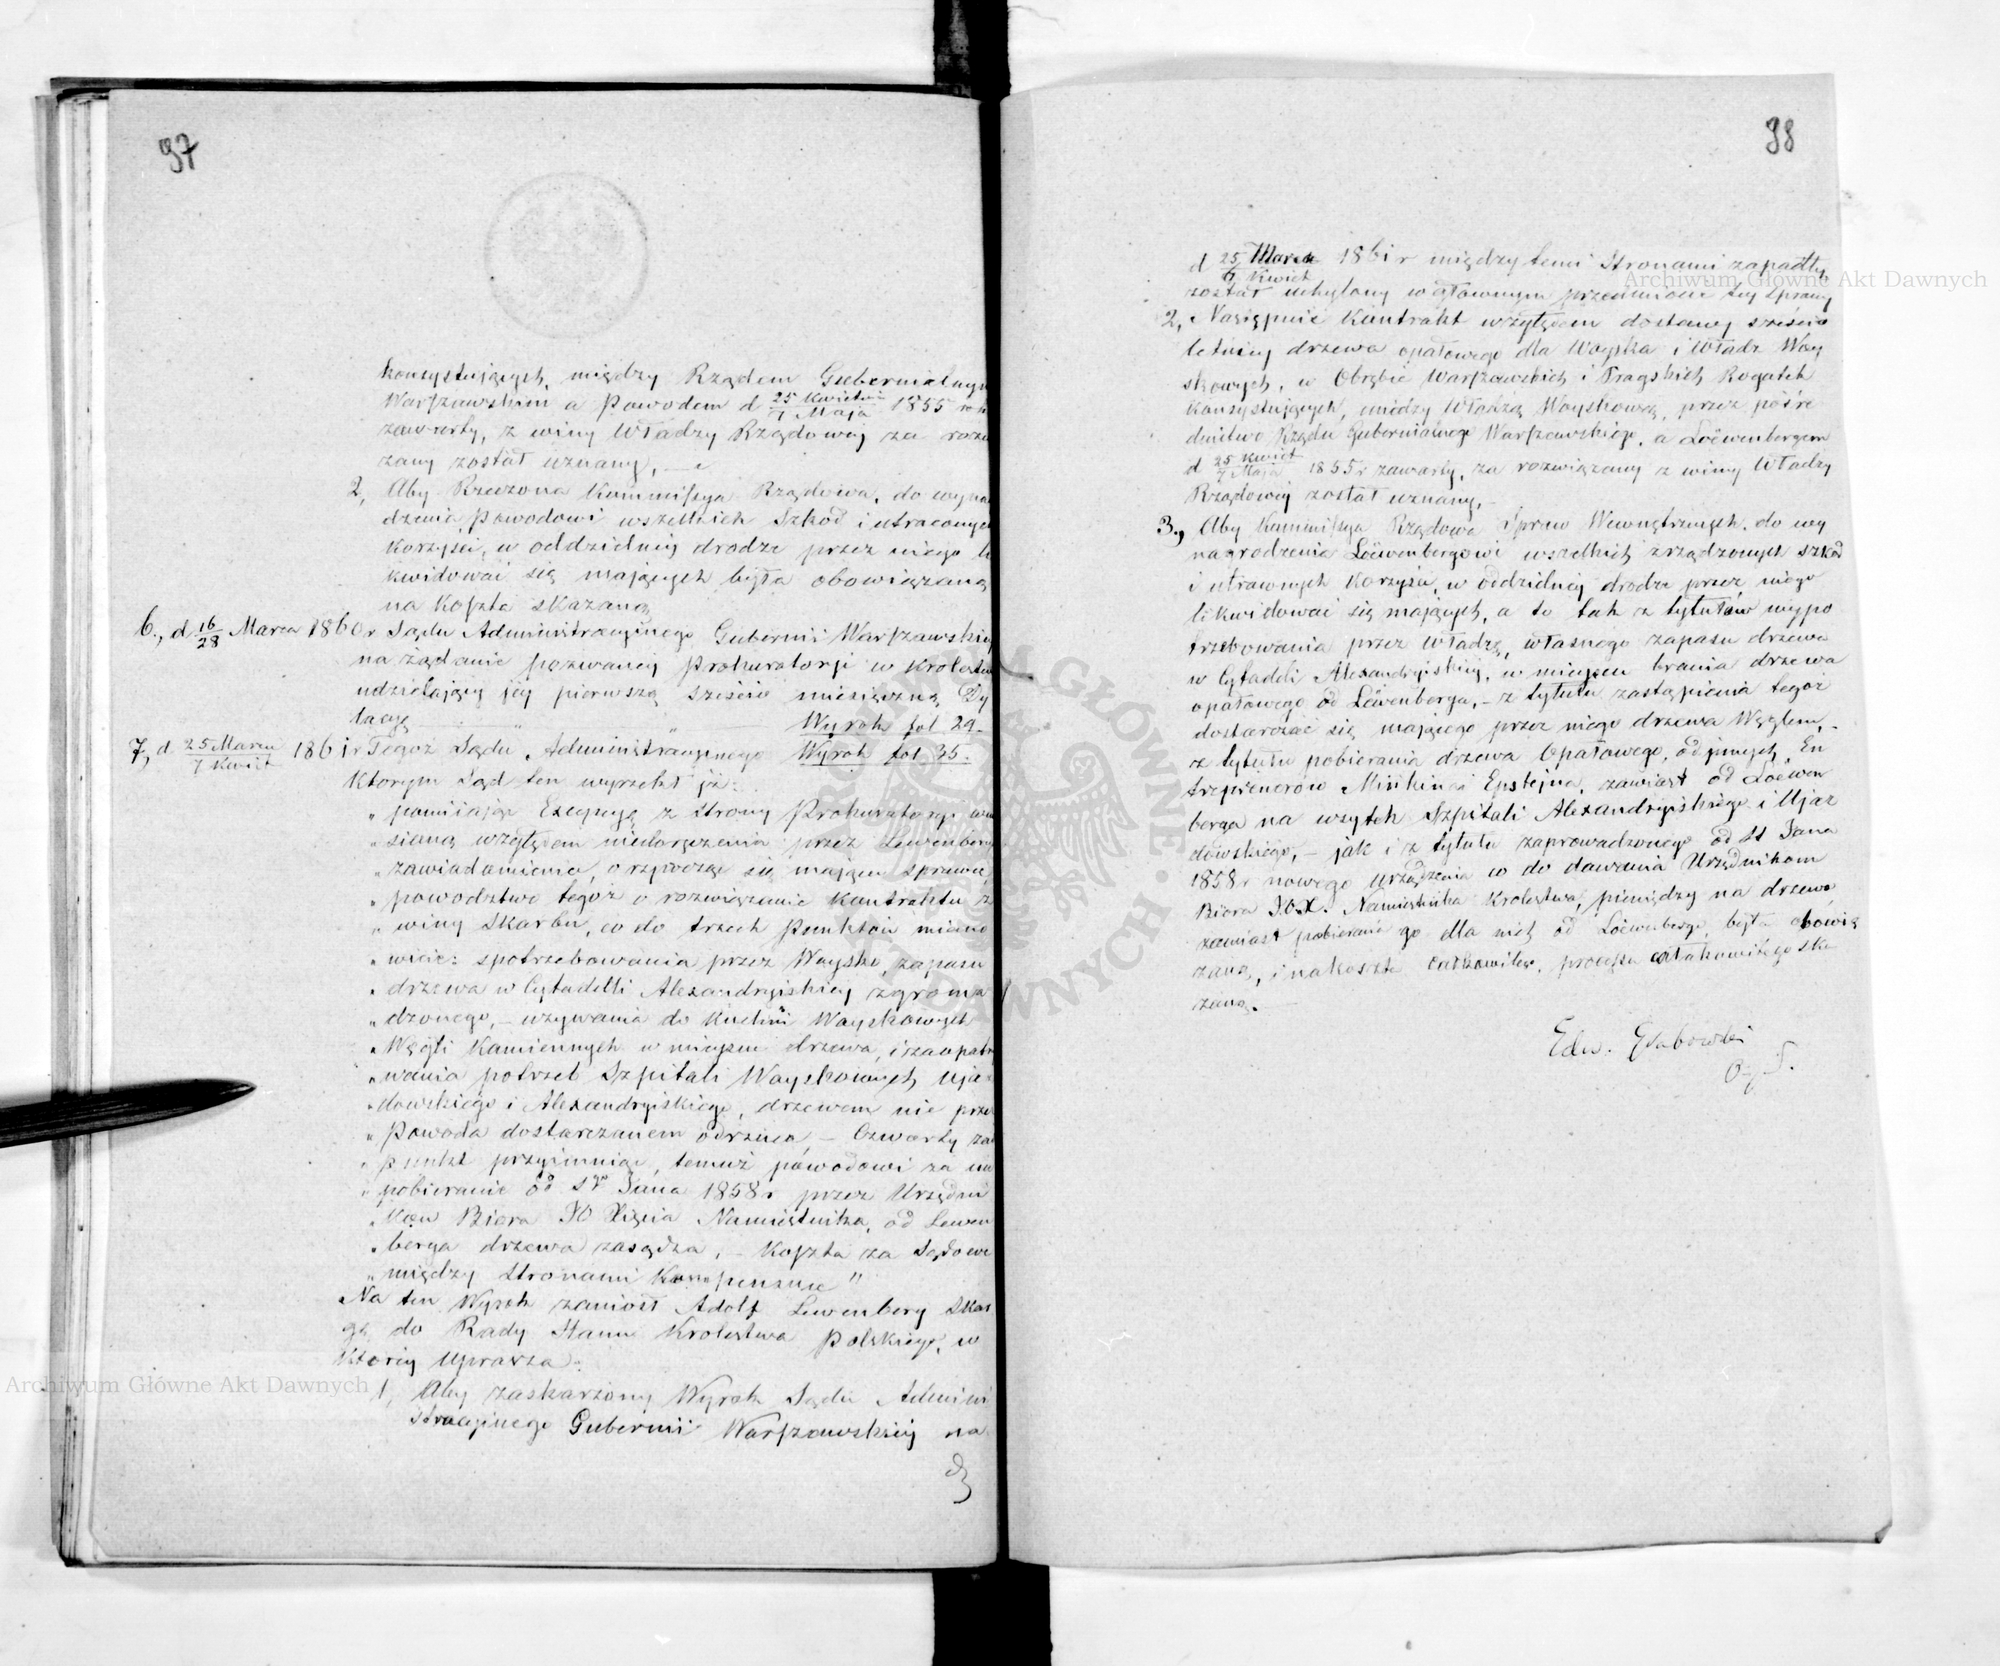 97
konsystujących, między Rządem Gubernialnym
Warszawskim a Powodem d 25 Kwietnia/7 Maja 1855 rok
zawarty, z winy Władzy Rządowej za rozwi
zany został uznany, —
2, Aby Rzeczona Kommissya Rządowa, do wyna
dzenia Powodowi wszelkich Szkód i utraconych
Korzyści, w oddzielnej drodze przez niego li
kwidować się mających była obowiązaną
na Koszta skazaną
6., d 16/28 Marca 1860 r Sądu Administracyjnego Gubernii Warszawskiej
na żądanie pozwanej Prokuratorji w Królestwie
udzielający jej pierwszą sześcio miesięczną Dy
lacyę Wyrok fol 29.
7, d 25 Marca/7 Kwiet 1861 r Tegoż Sądu Administracyjnego Wyrok fol 35.
Którym Sąd ten wyrzekł iż:
„ pomijając Excepcyę z strony Prokuratorji wnie
„ sioną względem niedoręczenia przez Lewenberg
„ zawiadomienia, o rzpocząć się mającej sprawie,
„ powództwo tegoż o rozwiązanie Kontraktu z
„ winy Skarbu, co do trzech Punktów miano
„ wicie: spotrzebowania przez Woysko, zapasu
„ drzewa w Cytadelli Alexandryiskiey zgroma
„ dzonego, — używania do Kuchni Woyskowych
„ Węgli Kamiennych w miejscu drzewa, i zaopatry
„ wania potrzeb Szpitali Woyskowych Uja
„ dowskiego i Alexandryiskiego, drzewem nie przez
„ Powoda dostarczanem odrzuca — Czwarty zaś
„ punkt przyjmując, temuż powodowi za nie
„ pobieranie od Sgo Jana 1858 r przez Urzędni
„ ków Biora JO Xięcia Namiestnika, od Lewen
„ berga drzewa zasądza, — Koszta za Sądowe
„ między Stronami Kompensuie"
Na ten Wyrok zaniósł Adolf Lewenberg Skar
gę do Rady Stanu Królestwa Polskiego, w
Któréj uprasza:
1, Aby zaskarżony Wyrok Sądu Admini
stracyjnego Gubernii Warszawskiej na
38
d 25 Marca/7 Kwiet 1861 r między temi Stronami zapadły,
został uchylony w głównym przedmiocie tey Sprawy
2, Następnie Kontrakt względem dostawy sześcio
letniey drzewa opałowego dla Woyska i Władz Woy
skowych, w Obrębie Warszawskich i Pragskich Rogatek
konsystujących, między Władzą Woyskową, przez pośre
dnictwo Rządu Gubernialnego Warszawskiego, a Loëwenbergem
d 25 Kwiet/7 Maja 1855 r zawarty, za rozwiązany z winy Władzy
Rządowéj został uznany, —
3., Aby Kommissya Rządowa Spraw Wewnętrznych, do wy
nagrodzenia Loëwenbergowi wszelkich zrządzonych szkód
i utraconych Korzyści, w oddzielnej drodze przez niego
likwidować się mających, a to tak z tytułów wypo
trzebowania przez Władzę, własnego zapasu drzewa
w Cytadeli Alexandryiskiej, w miejscu brania drzewa
opałowego od Lëwenberga, — z tytułu zastąpienia tegoż
dostarczać się mającego przez niego drzewa Węglem, —
z tytułu pobierania drzewa Opałowego, od innych En
treprenerów Mińkina i Epstejna, zamiast od Loëwen
berga na użytek Szpitali Alexandryiskiego i Ujaz
dowskiego, — jak i z tytułu zaprowadzonego od St Jana
1858 r nowego urządzenia co do dawania Urzędnikom
Biora J.O.X. Namiestnika Królestwa, pieniędzy na drzewo
zamiast pobierania go dla nich od Loëwenberga, była obowią
zaną, i na koszta całkowitego skazana
zaną. —
Edw. Grabowski
Archiwum Główne Akt Dawnych
Archiwum Główne Akt Dawnych